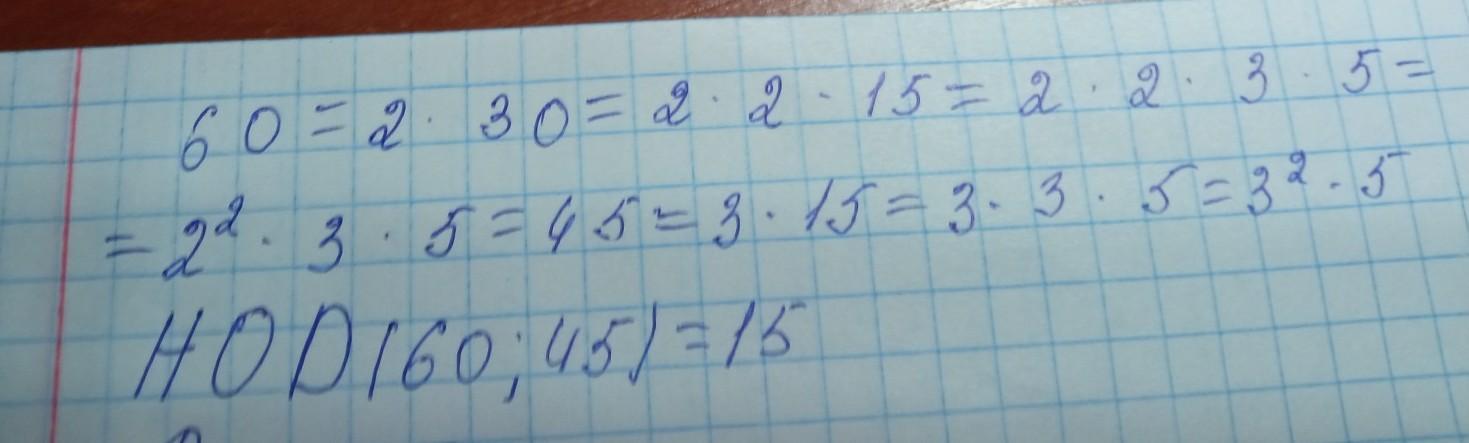 60 = 2 · 30 = 2 · 2 · 15 = 2 · 2 · 3 · 5 =
= 2² · 3 · 5 = 45 = 3 · 15 = 3 · 3 · 5 = 3² · 5
НОД(60; 45) = 15